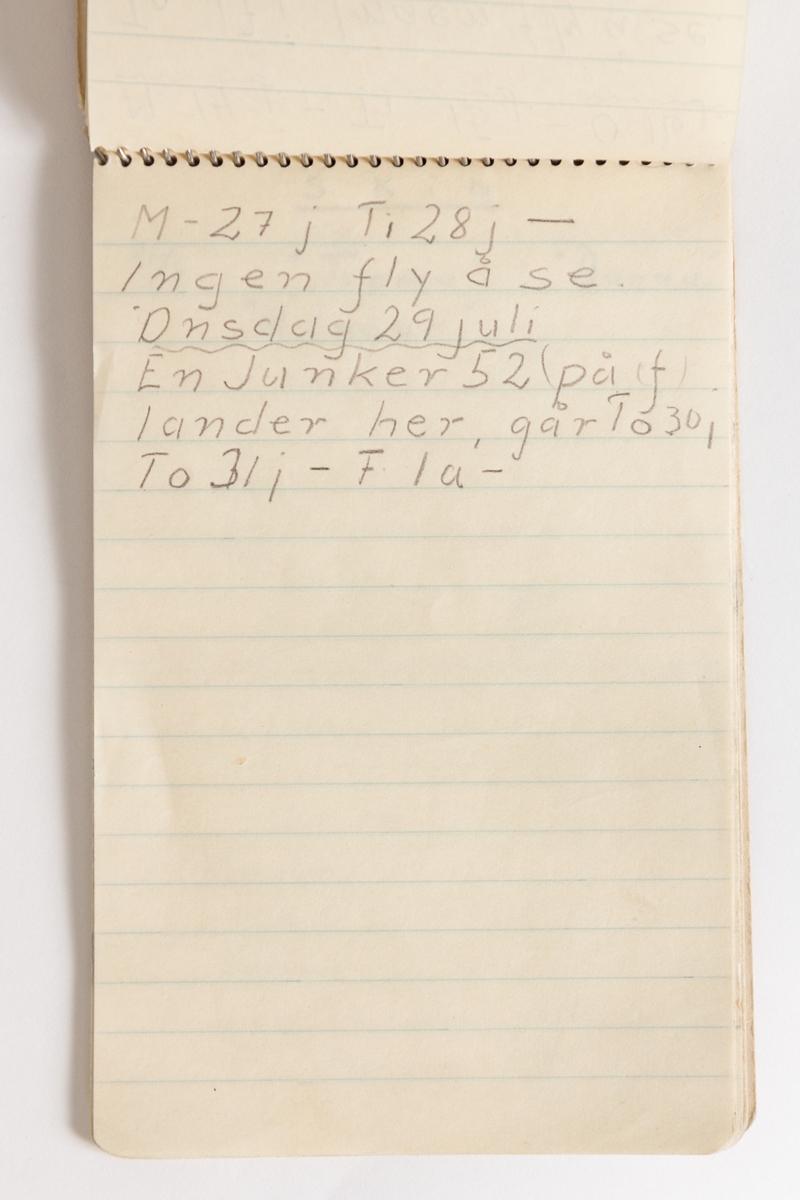 M-27 j Ti 28 j —
Ingen fly å se.
Onsdag 29 juli
En Junker 52 (på f).
lander her, går To 30 j
To 31 j - F. 1 a -